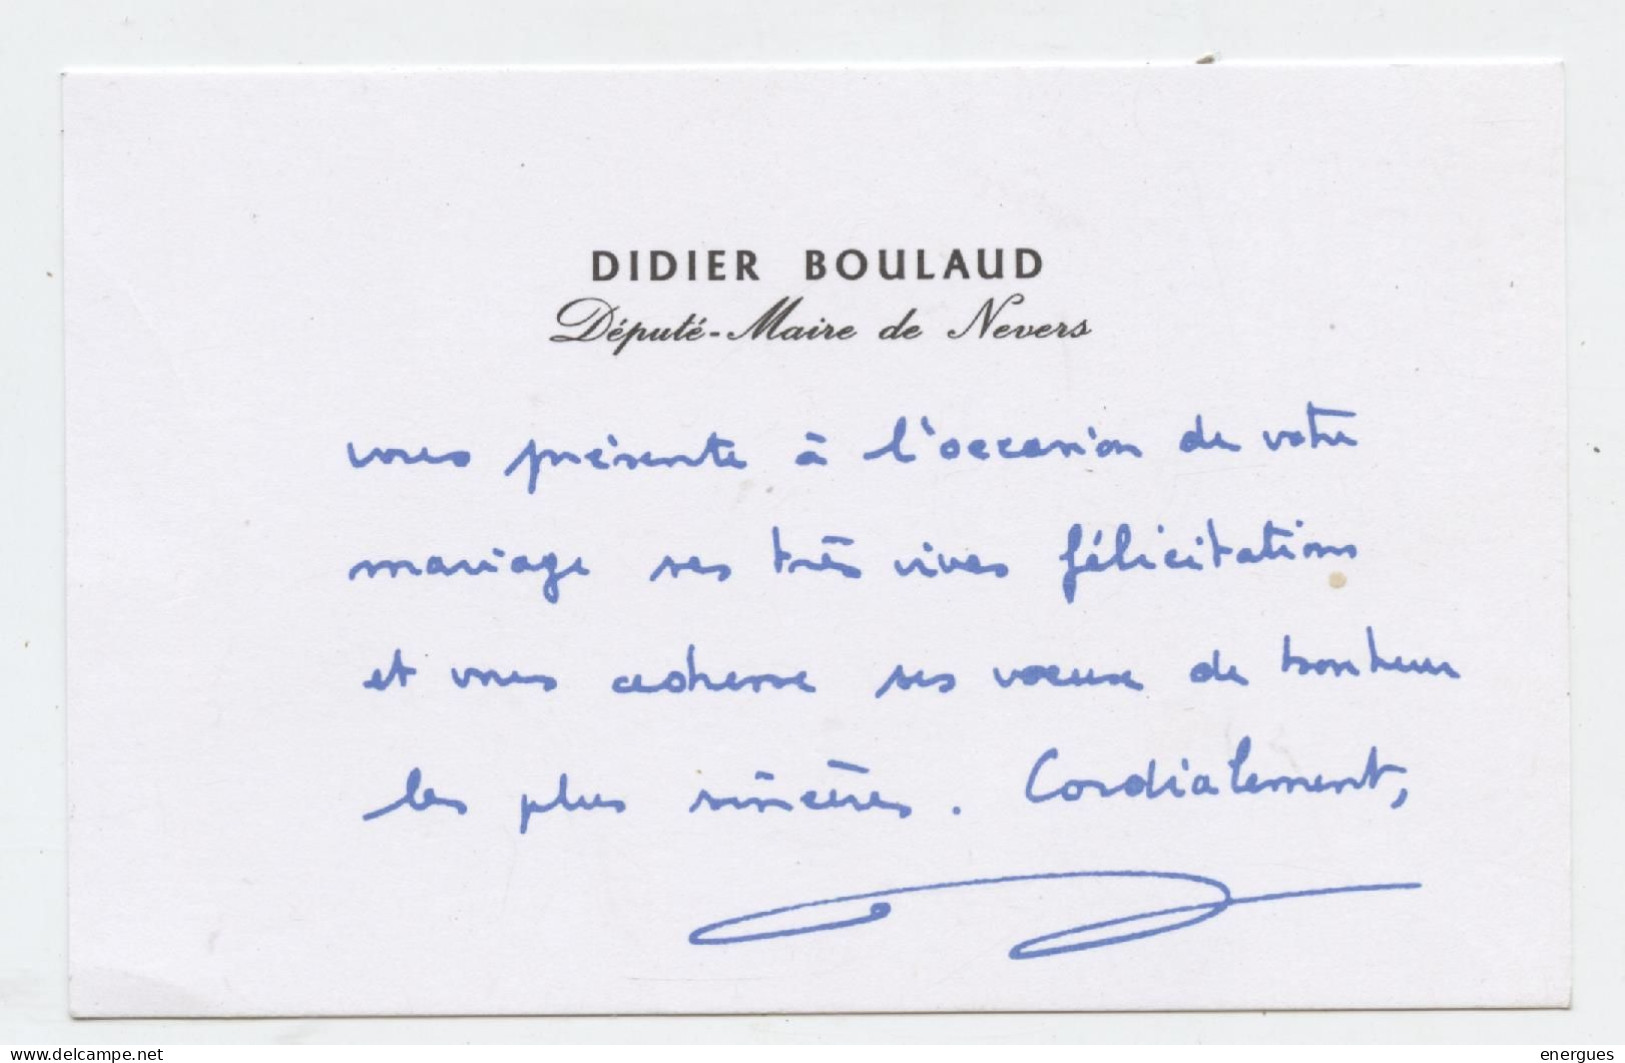 DIDIER BOULAUD
Député-Maire de Nevers
vous présente à l'occasion de votre
mariage ses très vives félicitations
et vous adresse ses voeux de bonheur
les plus sincères. Cordialement,
www.delcampe.net
energues